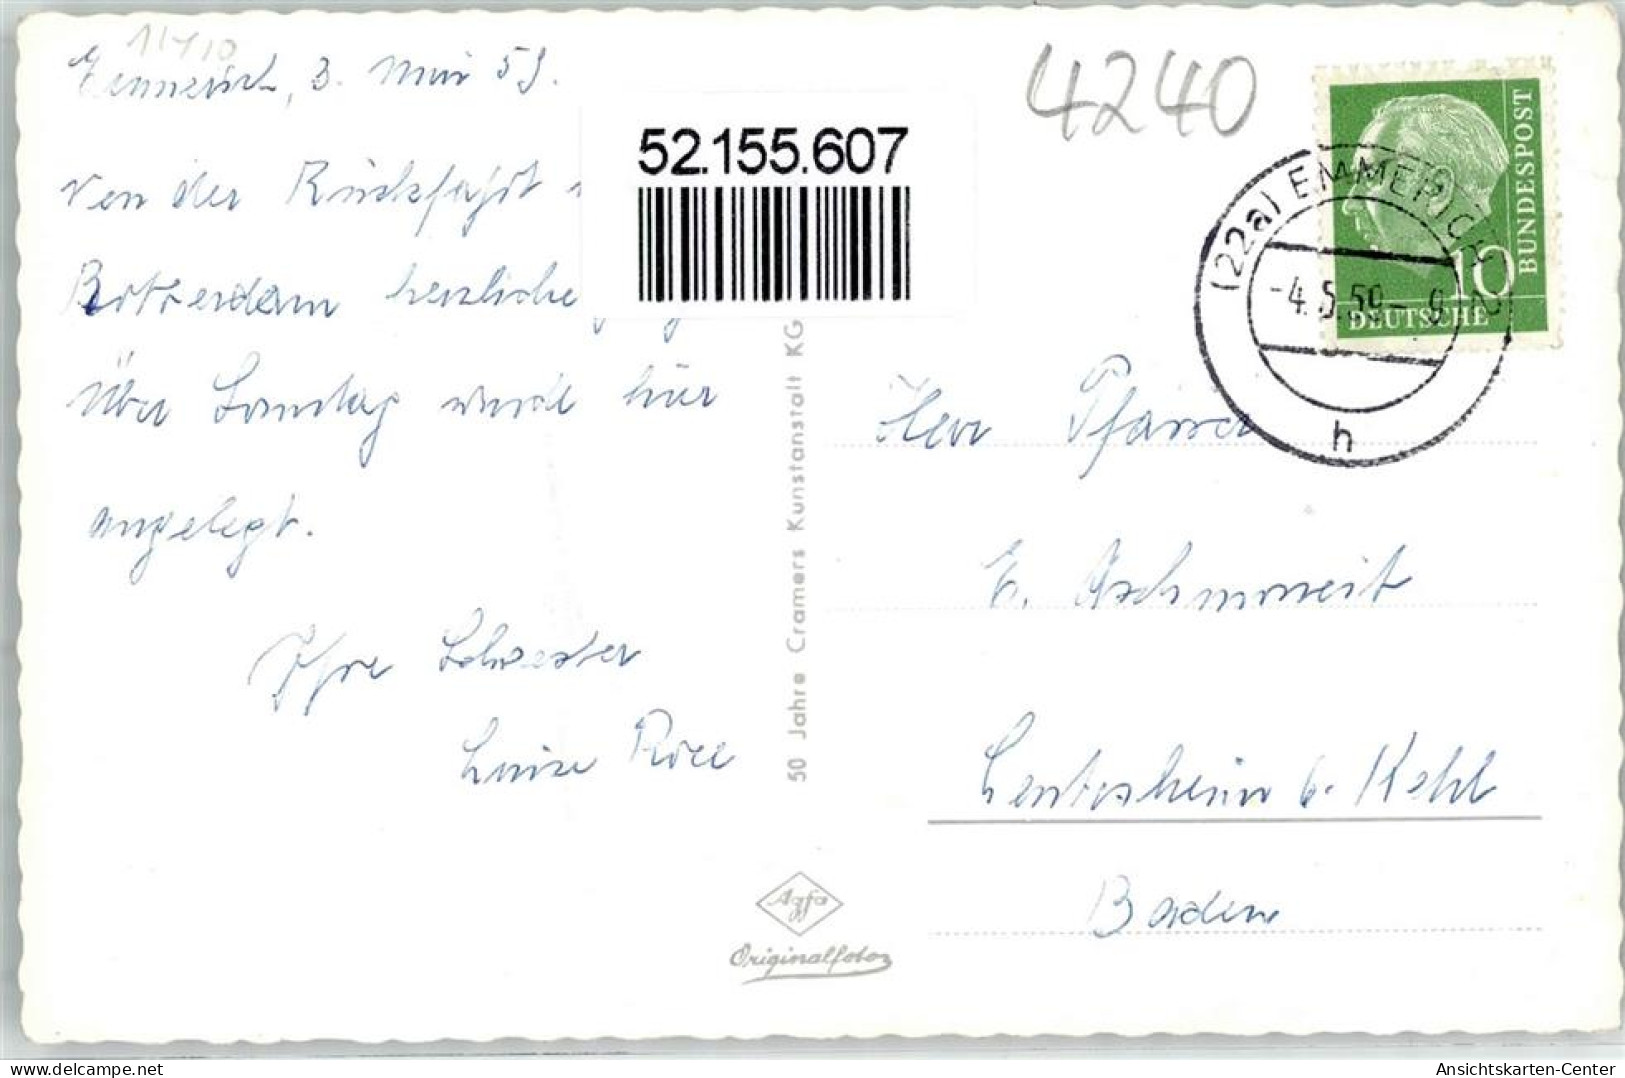 11410
Emmerich, 3. Mai 59.
Von der Rückfahrt
Rotterdam herzliche
Über Sonntag wurde hier
angelegt.
Ihre Schwester
Luise Roll
52.155.607
50 Jahre Cramers Kunstanstalt KG
Agfa
Originalfoto
4240
BUNDESPOST
10
DEUTSCHE
(22a) EMMERICH 2
-4.5.59- 9
h
Herr Pfarrer
E. Aschmoneit
Leutesheim b. Kehl
Baden
Ansichtskarten-Center